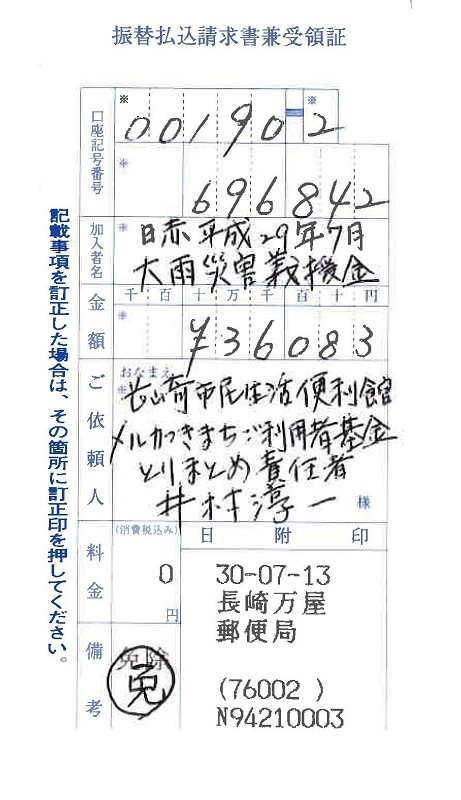 振替払込請求書兼受領証
口座記号番号
※
※
00190 2
※
696842
加入者名
※
日赤平成29年7月
大雨災害義援金
金額
千百十万千百十円
※
¥36083
ご依頼人
おなまえ
※
長崎市民生活便利館
メルカつきまちご利用者基金
とりまとめ責任者
井村淳一
様
料金
(消費税込み)
0
円
日附印
30-07-13
長崎万屋
郵便局
(76002 )
N94210003
備考
免除
免
記載事項を訂正した場合は、その箇所に訂正印を押してください。